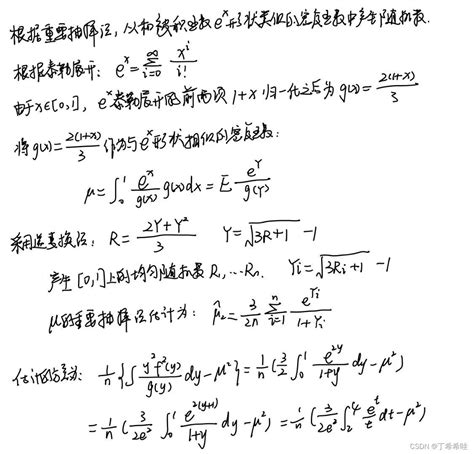 根据重要抽样法，从和被积函数 e^x 形状类似的密度函数中产生随机数.
根据泰勒展开：e^x = ∑_{i=0}^{∞} x^i / i!
由于 x∈[0,1]，e^x 泰勒展开的前两项 1+x 归一化之后为 g(x) = 2(1+x)/3
将 g(x) = 2(1+x)/3 作为与 e^x 形状相似的密度函数：
μ = ∫_0^1 e^x/g(x) g(x)dx = E e^Y/g(Y)
采用逆变换法：R = (2Y+Y²)/3　Y = √(3R+1) -1
产生 [0,1] 上的均匀随机数 R₁ … Rₙ. Yi = √(3Ri+1) -1
μ的重要抽样法估计为：μ̂₂ = 3/(2n) ∑_{i=1}^{n} e^{Yi}/(1+Yi)
估计的方差为：1/n {∫ y²f²(y)/g(y) dy - μ²} = 1/n (3/2 ∫_0^1 e^{2y}/(1+y) dy - μ²)
= 1/n (3/(2e²) ∫_0^1 e^{2(y+1)}/(1+y) dy - μ²) = 1/n (3/(2e²) ∫_2^4 e^t/t dt - μ²)
CSDN @丁希希哇